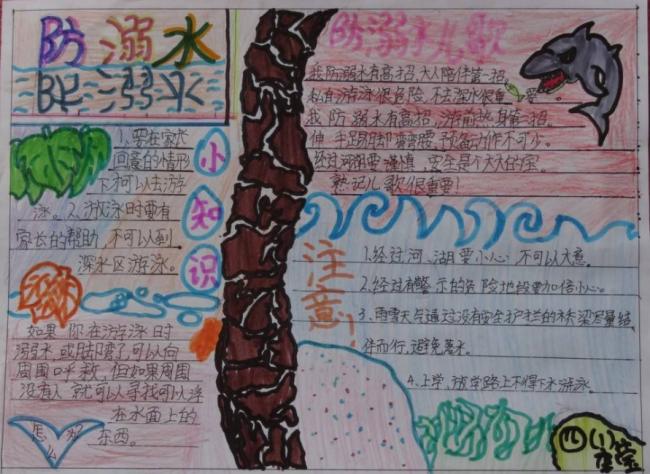 防溺水
防溺水
小知识
1、要在家长
同意的情形
下才可以去游
泳。2、游泳时要有
家长的帮助，不可以到
深水区游泳。
如果你在游泳时
溺水或脚抽了可以向
周围呼救，但如果周围
没有人就可以寻找可以浮
在水面上的
东西。
怎么办
防溺水儿歌
我防溺水有高招，大人陪伴第一招，
私自游泳很危险，不去深水很重要。
我防溺水有高招，游前热身第二招。
伸手踢脚弯弯腰，预备动作不可少。
经过河湖要谨慎，安全是个大大的宝。
熟记儿歌很重要！
注意！
1.经过河、湖要小心，不可以大意。
2.经过有警示的危险地段要加倍小心。
3、雨雪天气通过没有安全护栏的桥梁尽量结
伴而行，避免落水。
4.上学、放学路上不得下水游泳。
四(1)